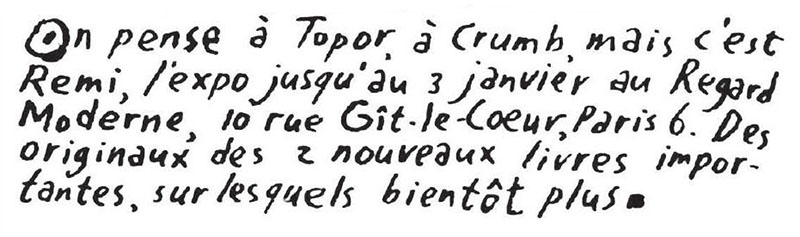 On pense à Topor, à Crumb, mais c'est
Remi, l'expo jusqu'au 3 janvier au Regard
Moderne, 10 rue Gît-le-Cœur, Paris 6. Des
originaux des 2 nouveaux livres impor-
tantes, sur lesquels bientôt plus.